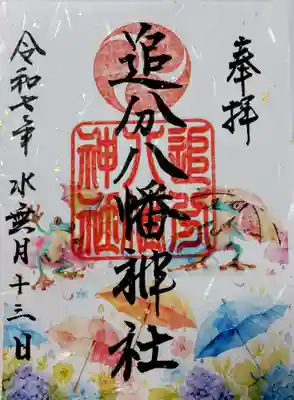 奉拝
追分八幡神社
追分
八幡
神社
令和七年 水無月十三日